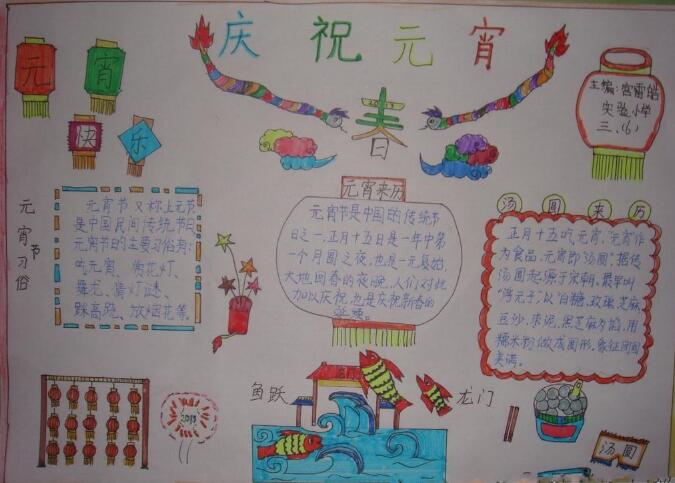 庆 祝 元 宵
元 宵
快 乐
春
主编:宫雷皓
实验小学
三、(6)
元宵节习俗
元宵节又称上元节
是中国民间传统节日
元宵节的主要习俗有:
吃元宵、赏花灯、
舞龙、猜灯谜、
踩高跷、放烟花等。
元宵来历
元宵节是中国的传统节
日之一,正月十五日是一年中第
一个月圆之夜,也是一元复始,
大地回春的夜晚,人们对此
加以庆祝,也是庆祝新春的
延续。
汤 圆 来 历
正月十五吃元宵,元宵作
为食品,元宵即"汤圆"据传
汤圆起源于宋朝。最早叫
"浮元子"以白糖,玫瑰,芝麻
豆沙,枣泥,黑芝麻为馅,用
糯米粉做成圆形,象征团圆
美满。
鱼跃 龙门
2013
汤圆